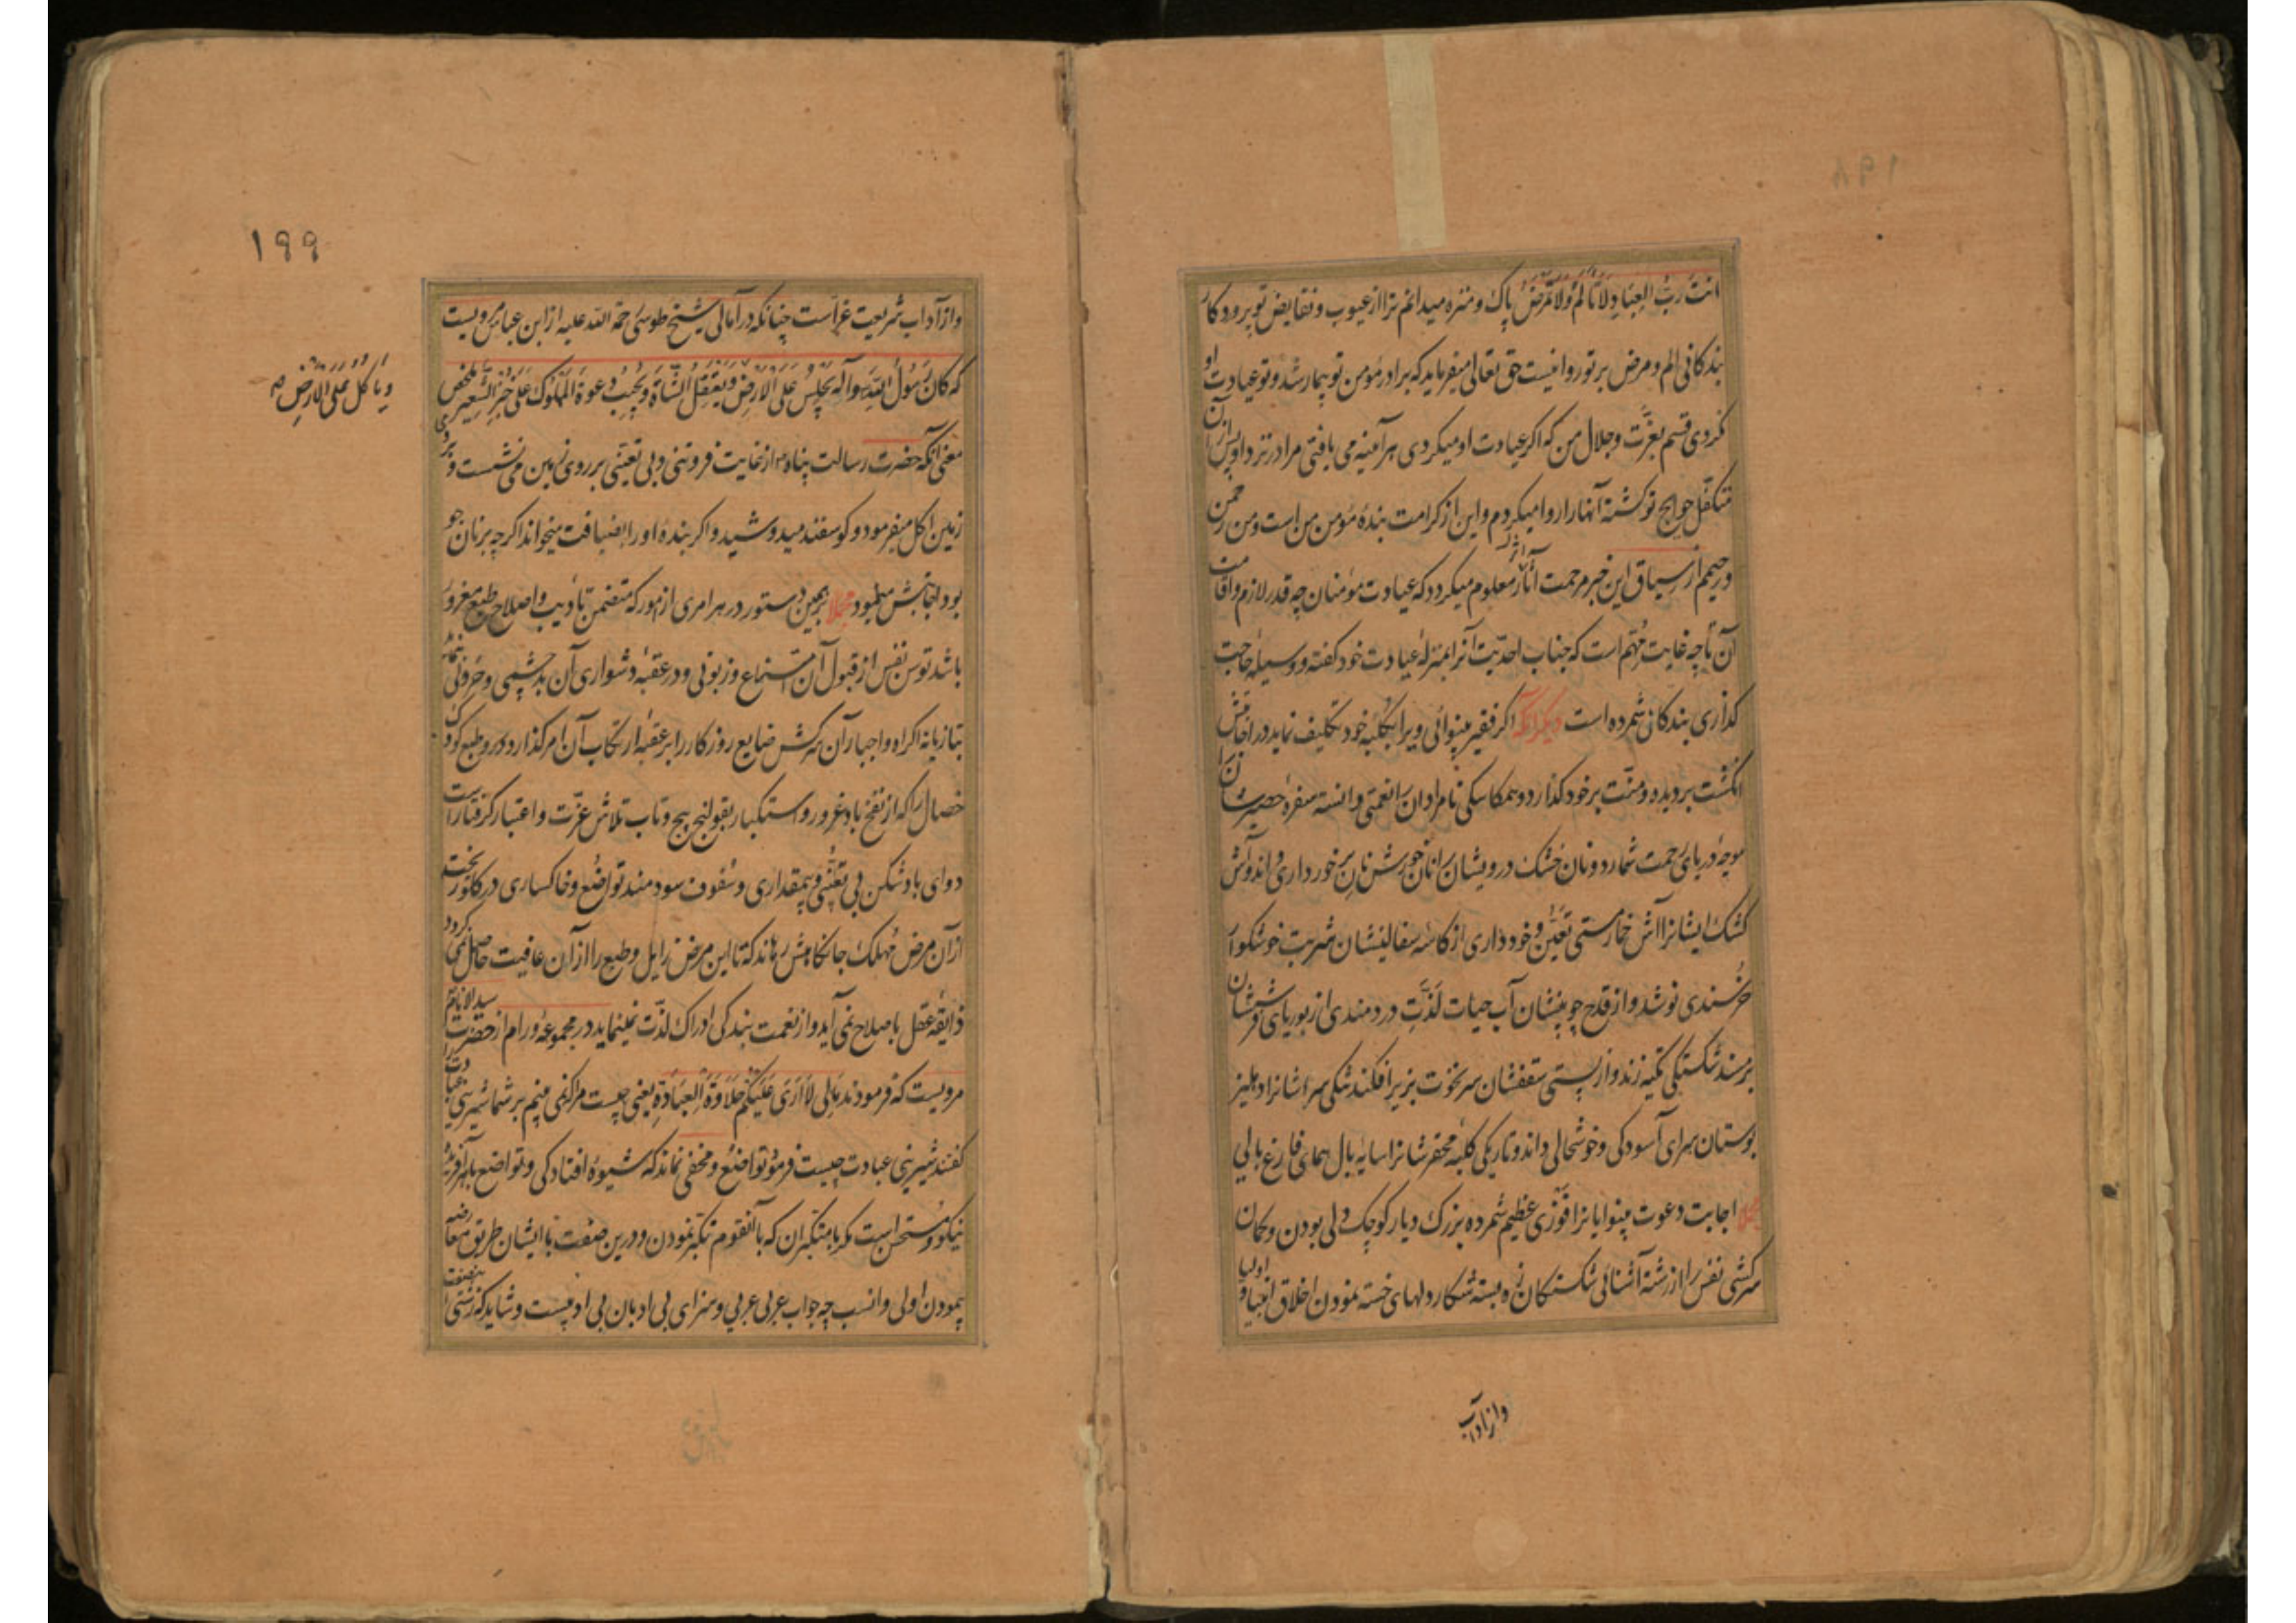 انت رَبُّ العِبادِ لا تَألَمُ ولا تَمرَضُ پاک و منزه میدانم ترا از عیوب و نقایض تو پروردکار
بندکانی الم و مرض بر تو روا نیست حق تعالی میفرماید که برادر مؤمن تو بیمار شد و تو عیادت او
نکردی قسم بعزّت و جلال من که اکر عیادت او میکردی هر آینه می یافتی مرا در نزد او پس از آن
متکفّل حوایج تو کشته آنها را روا میکردم و این از کرامت بندهٔ مؤمن من است و من رحمن
و رحیمم از سیاق این خبر مرحمت اثر معلوم میکردد که عیادت مؤمنان چه قدر لازم و اقامت
آن تا چه غایت مُهّم است که جناب احدّیت آنرا بمنزلهٔ عیادت خود کفته و وسیلهٔ حاجت
کذاری بندکان شمرده است دیکر آنکه اکر فقیر بینوائی ویرا بکلبهٔ خود تکلیف نماید در اجابتش
انکشت بر دیده و منّت بر خود کذارد و همکاسکی نامرادان را نعمتی دانسته سفرهٔ حصیرشان را
موجهٔ دریای رحمت شمارد و نان خشک درویشان را نان خورش نانِ برخورداری داند و آش
کشک ایشانرا آش خمار مستی تَعَیُّن و خودداری از کاسهٔ سفالینشان شربت خوشکوار
خرسندی نوشد و از قدح چوبینشان آب حیات لذّتِ دردمندی از بوریای فرششان
بر مسند شکستکی تکیه زند و از پستی سقفشان سر نخوت بزیر افکند تنکی سراشانرا دهلیز
بوستان سرای آسودکی و خوشحالی داند و تاریکی کلبهٔ محقرشانرا سایهٔ بال همای فارغ بالی
مجملا اجابت دعوت بینوایانرا فَوْزی عظیم شمرده بزرک و یار کوچک دلی بودن و کمان
سرکشی نفس را از رشتهٔ آشنائی شکستکان زه بسته شکار دلهای خسته نمودن اخلاق انبیا و اولیا
واز آداب
۱۹۹
و از آداب شریعت غرّاست چنانکه در آمالی شیخ طوسی رحمة الله علیه از ابن عباس مرویست
که کانَ رَسُولُ اللّهِ وآله یَجْلِسُ عَلَی الاَرْضِ وَیَعْتَقِلُ الشّاةَ وَیُجیبُ دعوةَ المَمْلُوکِ عَلی خُبْزِ الشَّعیرِ ملخص
وَیَأکُلُ عَلَی الاَرْضِ صح
معنی آنکه حضرت رسالت پناه از غایت فروتنی و بی تعیّنی بر روی زمین می نشست و بر روی
زمین اکل میفرمود و کوسفند میدوشید و اکر بندهٔ او را بضیافت میخواند اکرچه بر نان جو
بود اجابتش مینمود مجملا برهمین دستور در هر امری از امور که متضمن تادیب و اصلاح طبع مغرور
باشد توسن نفس از قبول آن امتناع و زبونی و در عقبهٔ دشواری آن بدچشمی و حرونی نماید
بتازیانهٔ اکراه و اجبار آن سرکش ضایع روزکار را بر عقبهٔ ارتکاب آن امر کذارد و در طبع کودک
خصال را که از نفخ باد غرور و استکبار بقولنج پیچ و تاب تلاش عزّت و اعتبار کرفتار است
دوای باد شکن بی تعیّنی و بیمقداری و سفوف سودمند تواضع و خاکساری در کلو ریخته
از آن مرض مُهلک جانکاهش رهاند که تا این مرض زایل و طبع را از آن عافیت حاصل نمی کردد
ذایقهٔ عقل باصلاح نمی آید و از نعمت بندکی ادراک لذّت نمینماید در مجموعهٔ ورام از حضرت سید الانام
مرویست که فرمودند مالی لا اَری عَلَیکُمْ حَلاوَةَ العِبادَةِ یعنی چیست مرا که نمی بینم بر شما شیرینی عبادت را
کفتند شیرینی عبادت چیست فرمود تواضع و مخفی نماند که شیوهٔ افتادکی و تواضع با هر آفریده
نیکو و مستحسن است مکر با متکبّران که با آنقوم تکبّر نمودن و درین صفت با ایشان طریق معارضه
پیمودن اولی و انسب چه جواب عربی عربی و سزای بی ادبان بی ادبیست و شاید که زشتی اینصفت